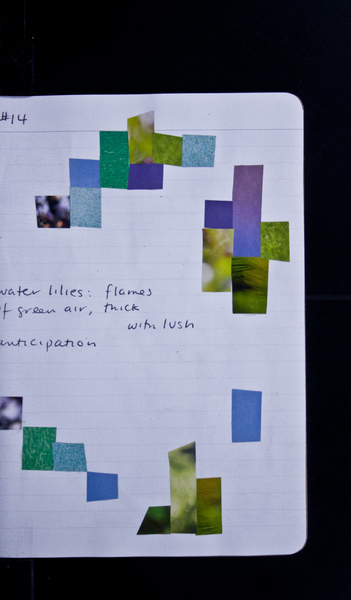 #14
water lilies: flames
of green air, thick
with lush
anticipation